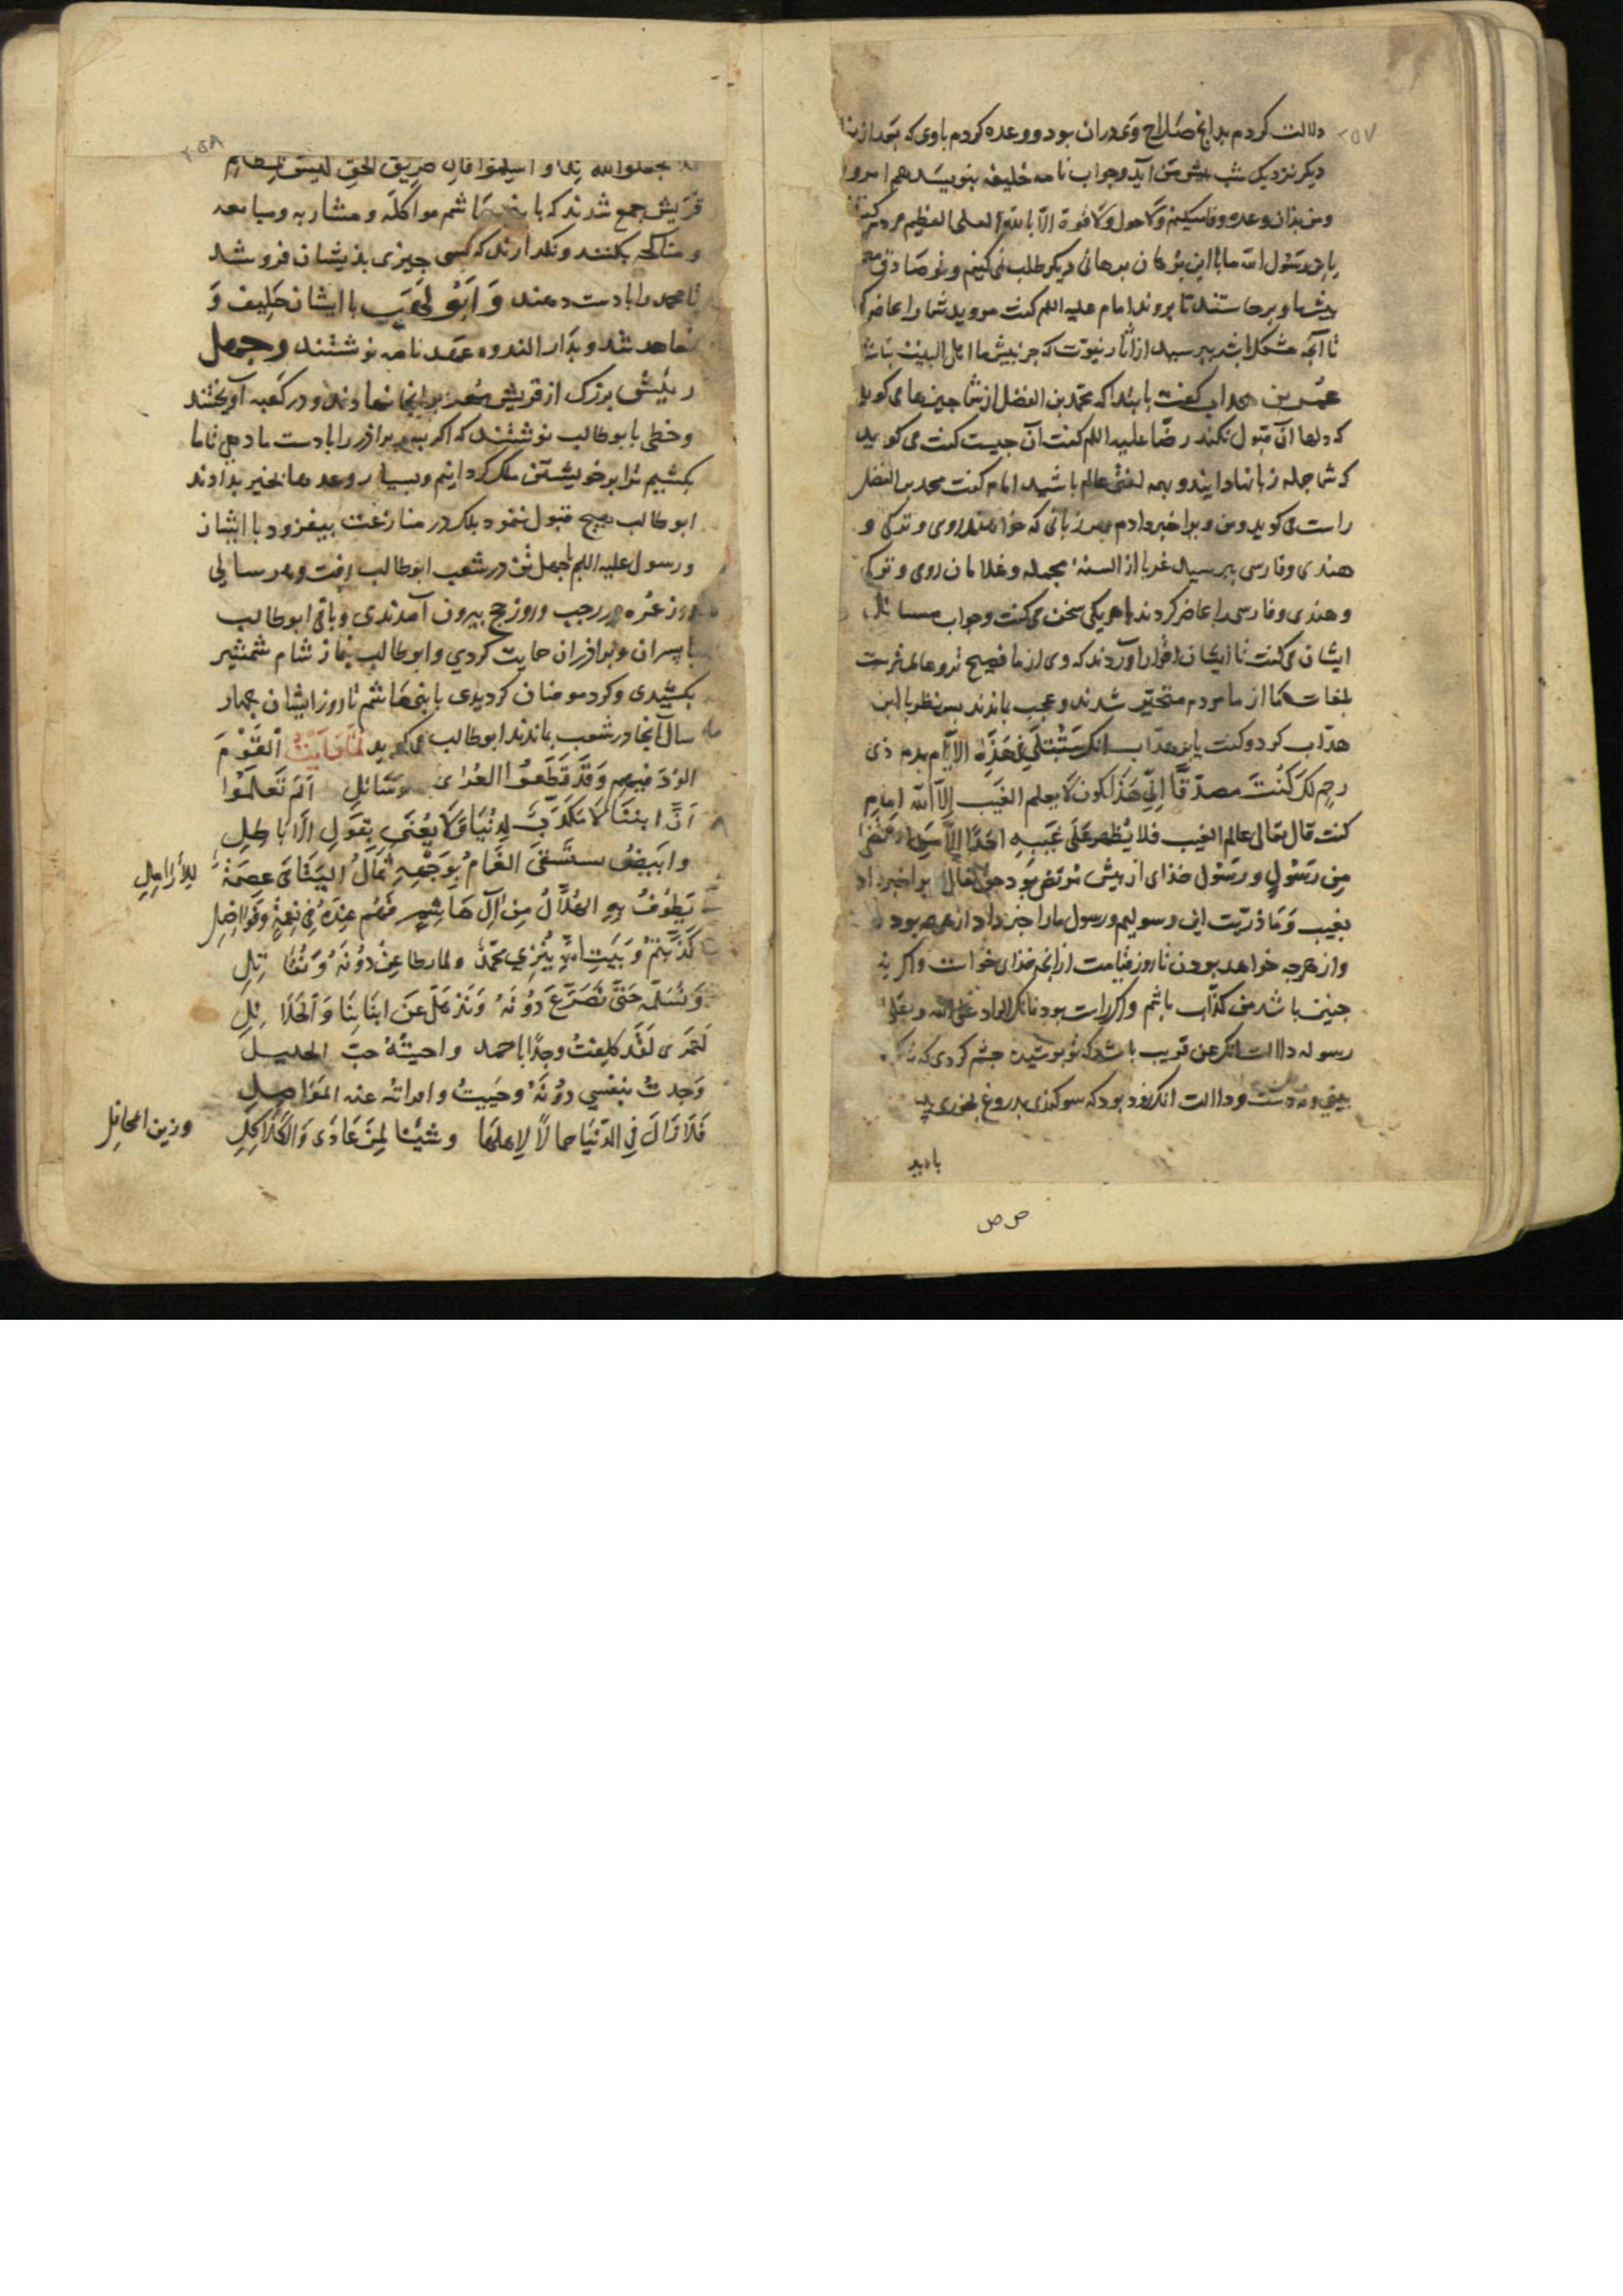 ۲۵۷
دلالت کردم بدانچ صلاح وی دران بود و وعده کردم باوی که بعد از نما
دیکر نزدیک شب پیش من آید و جواب نامه خلیفه بنویسد هم امروز
ومن بذان وعده وفا میکنم ولا حول ولا قوة الا بالله العلی العظیم مردم کفتند
یابن رسول الله ما با این برهان برهانی دیکر طلب نمی کنیم و تو صادقی
پیش ما و برخاستند تا بروند امام علیه السلم کفت مروید شما را حاضر
تا آنچه مشکل باشد بپرسید از آثار نبوت که جز پیش ما اهل البیت نباشد
عمر بن هداب کفت بابتدا که محمد بن الفضل از شما چیزها می کوید
که دلها آن قبول نکند رضا علیه السلم کفت آن چیست کفت می کوید
که شما جمله زبانها دانید و بهمه لغتی عالم باشید امام کفت محمد بن الفضل
راست می کوید ومن ویرا خبر دادم بهر زبانی که خواهند رومی و ترکی و
هندی و فارسی بپرسید از السنه بجمله و غلامان رومی و ترکی
و هندی و فارسی را حاضر کردند با هریکی سخن می کفت و جواب مسائل
ایشان می کفت تا ایشان اقرار آوردند که وی از ما فصیح ترو عالم ترست
بلغات ما از ما مردم متحیر شدند و عجب بماندند پس نظر با ابن
هداب کرد و کفت یابن هداب انک ستبتلی فی هذه الایام بدم ذی
رحم لک کنت مصدقا انی هذا یکون لا یعلم الغیب الا الله امام
کفت قال تعالی عالم الغیب فلا یظهر علی غیبه احدا الا من ارتضی
من رسول و رسول خذای از پیش مرتضی بود حق تعالی ویرا خبر داد
بغیب و ما ذریت این رسولیم و رسول مارا خبر داد از هرچه بود
واز هرچه خواهد بودن تا روز قیامت از آنچه خذای خواست واکر نه
چنین باشد من کذاب باشم واکر راست بود
رسوله دلالت انک عن قریب باشد که تو پوشیده چشم کردی که
و دلالت بود که سوکندی بدروغ بخوری
بادید
ص ص
۲۵۸
تجعلوا لله ندا و اسلموا فان طریق الحق لیس بمظلم
قریش جمع شدند که با بنی هاشم مواکله و مشاربه ومبایعه
ومناکحه نکنند و نکذارند که کسی چیزی بذیشان فروشد
تا محمد را بادست دهند و ابو لهب با ایشان حلیف و
معاهد شد و بدار الندوه عهد نامه نوشتند و چهل
رئیس بزرک از قریش مهر بر آنجا نهادند و در کعبه آویختند
وخطی بابوطالب نوشتند که اکر پسر برادر را بادست ما دهی تا ما
بکشیم ترا بر خویشتن ملک کردانیم وبسیار وعدها بخیر بدادند
ابو طالب هیچ قبول ننمود بلک در منازعت بیفزود با ایشان
ورسول علیه السلم با چهل تن در شعب ابوطالب رفت وهر سالی
روز غره رجب وروز حج بیرون آمدندی وباقی ابوطالب
با پسران وبراذران حمایت کردی وابوطالب نماز شام شمشیر
بکشیدی وکرد مومنان کردیدی با بنی هاشم تا روز ایشان چهار
سال آنجا در شعب بماندند ابوطالب می کوید لما رایت القوم
لا ود فیهم وقد قطعوا العری وسائل الم تعلموا
ان ابننا لا مکذب لدینا ولا یعنی بقول الاباطل
وابیض یستسقی الغمام بوجهه ثمال الیتامی عصمة للأرامل
یطوف به الهلاک من آل هاشم فهم عنده فی نعمة وفواضل
کذبتم وبیت الله یبزی محمد ولما نطاعن دونه ونقاتل
ونسلمه حتی نصرع دونه ونذهل عن ابنائنا والحلائل
لعمری لقد کلفت وجدا باحمد واحببته حب الحبیب
وجدت بنفسی دونه وحمیت
فلا زال فی الدنیا جمالا لاهلها وشینا لمن عادی وزین المحافل